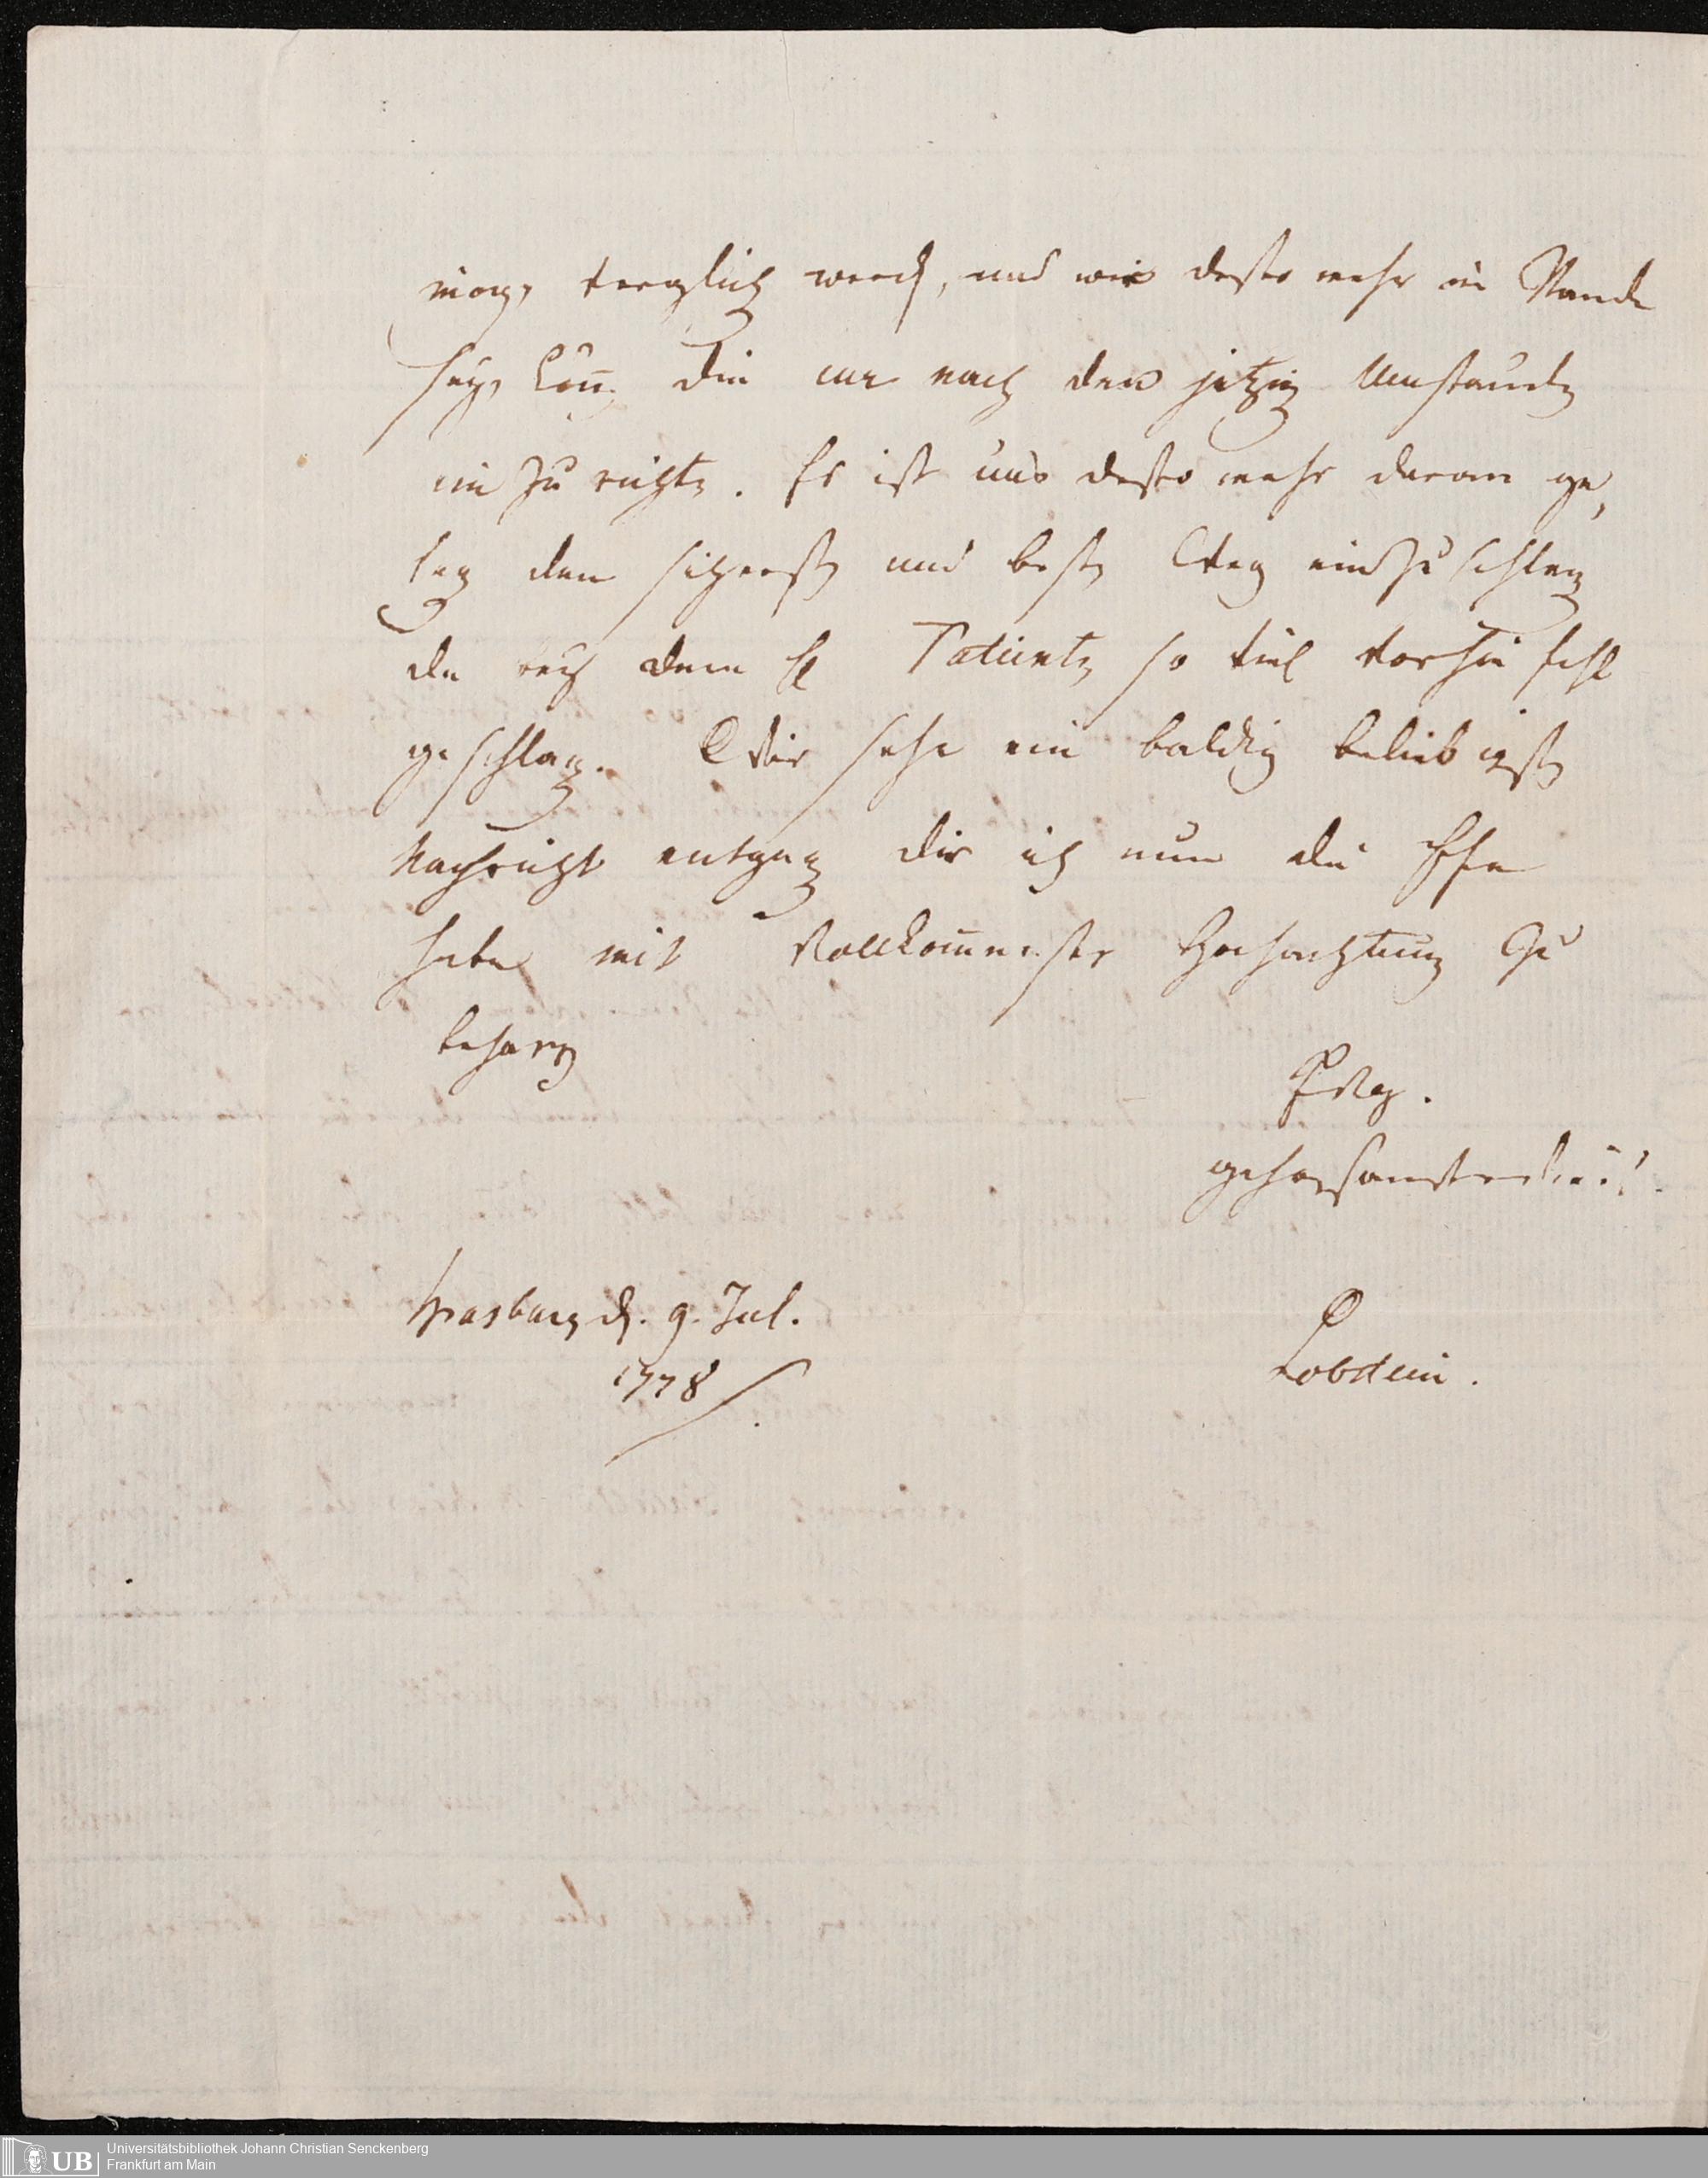 mög, verglich werd, und wir desto mehr im Stande
seyn könn. die cur nach den jetzig Umständ
ein zu richt. Es ist uns desto mehr daran ge,
leg den sicherst und best Weg einzuschlag
da bey dem H Patient so viel vorhin fehl
geschlag. Wir sehe ein baldig beliebigst
Nachricht entgeg die ich nun die Ehre
habe mit Vollkommenster Hochachtung zu
beharr
gehorsamster
Strasburg d. 9. Jul.
1778
Lobstein.
UB Universitätsbibliothek Johann Christian Senckenberg
Frankfurt am Main